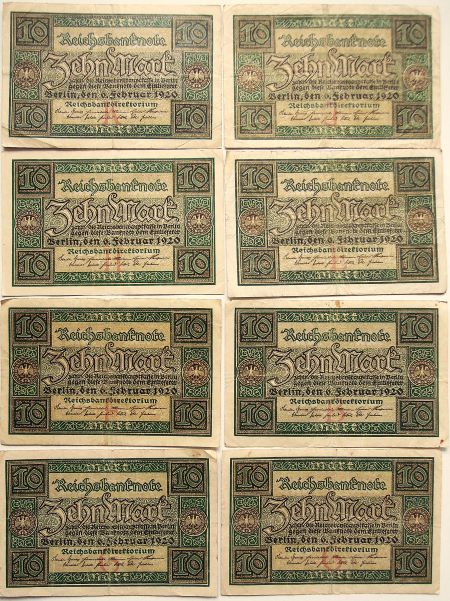 10 Mark 10
Reichsbanknote
Zehn Mark
zahlt die Reichsbankhauptkasse in Berlin
gegen diese Banknote dem Einlieferer
Berlin, den 6. Februar 1920
Reichsbankdirektorium
10 Mark 10
10 Mark 10
Reichsbanknote
Zehn Mark
zahlt die Reichsbankhauptkasse in Berlin
gegen diese Banknote dem Einlieferer
Berlin, den 6. Februar 1920
Reichsbankdirektorium
10 Mark 10
10 Mark 10
Reichsbanknote
Zehn Mark
zahlt die Reichsbankhauptkasse in Berlin
gegen diese Banknote dem Einlieferer
Berlin, den 6. Februar 1920
Reichsbankdirektorium
10 Mark 10
10 Mark 10
Reichsbanknote
Zehn Mark
zahlt die Reichsbankhauptkasse in Berlin
gegen diese Banknote dem Einlieferer
Berlin, den 6. Februar 1920
Reichsbankdirektorium
10 Mark 10
10 Mark 10
Reichsbanknote
Zehn Mark
zahlt die Reichsbankhauptkasse in Berlin
gegen diese Banknote dem Einlieferer
Berlin, den 6. Februar 1920
Reichsbankdirektorium
10 Mark 10
10 Mark 10
Reichsbanknote
Zehn Mark
zahlt die Reichsbankhauptkasse in Berlin
gegen diese Banknote dem Einlieferer
Berlin, den 6. Februar 1920
Reichsbankdirektorium
10 Mark 10
10 Mark 10
Reichsbanknote
Zehn Mark
zahlt die Reichsbankhauptkasse in Berlin
gegen diese Banknote dem Einlieferer
Berlin, den 6. Februar 1920
Reichsbankdirektorium
10 Mark 10
10 Mark 10
Reichsbanknote
Zehn Mark
zahlt die Reichsbankhauptkasse in Berlin
gegen diese Banknote dem Einlieferer
Berlin, den 6. Februar 1920
Reichsbankdirektorium
10 Mark 10